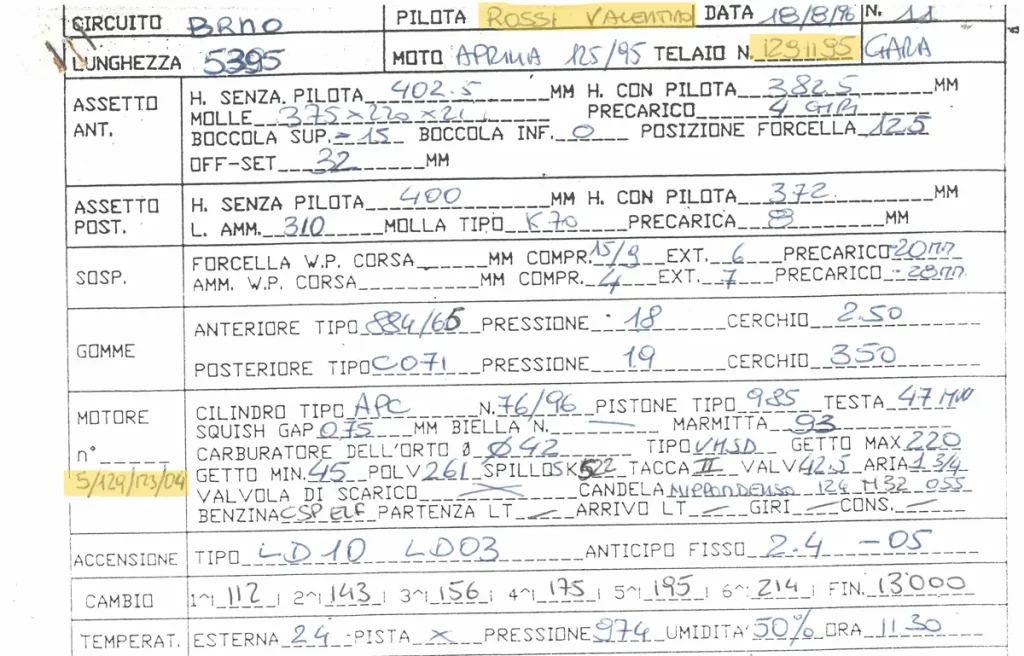 CIRCUITO BRNO PILOTA ROSSI VALENTINO DATA 18/8/96 N. 11
LUNGHEZZA 5395 MOTO APRILIA 125/95 TELAIO N. 1291195 GARA
ASSETTO ANT. H. SENZA. PILOTA 402.5 MM H. CON PILOTA 382.5 MM
MOLLE 375x220x21 PRECARICO 4 GIRI
BOCCOLA SUP. = 15 BOCCOLA INF. 0 POSIZIONE FORCELLA 12.5
OFF-SET 32 MM
ASSETTO POST. H. SENZA PILOTA 400 MM H. CON PILOTA 372. MM
L. AMM. 310 MOLLA TIPO K70 PRECARICA 8 MM
SOSP. FORCELLA W.P. CORSA MM COMPR. 15/9 EXT. 6 PRECARICO 20mm
AMM. W.P. CORSA MM COMPR. 4 EXT. 7 PRECARICO 28mm
GOMME ANTERIORE TIPO 884/65 PRESSIONE 18 CERCHIO 2.50
POSTERIORE TIPO C071 PRESSIONE 1.9 CERCHIO 350
MOTORE CILINDRO TIPO APC N. 76/96 PISTONE TIPO 985 TESTA 47
SQUISH GAP 075 MM BIELLA N. MARMITTA 93
n° CARBURATORE DELL'ORTO Ø Ø42 TIPO VHSD GETTO MAX 220
5/129/123/04 GETTO MIN. 45 POLV 261 SPILLO SK522 TACCA II VALV 42.5 ARIA 1 3/4
VALVOLA DI SCARICO CANDELA NIPPONDENSO 124 M32 055
BENZINA CSP ELF PARTENZA LT ARRIVO LT GIRI CONS.
ACCENSIONE TIPO LD10 LD03 ANTICIPO FISSO 2.4 -05
CAMBIO 1^ 112 2^ 143 3^ 156 4^ 175 5^ 195 6^ 214 FIN. 13'000
TEMPERAT. ESTERNA 24 PISTA X PRESSIONE 974 UMIDITA' 50% ORA 11.30